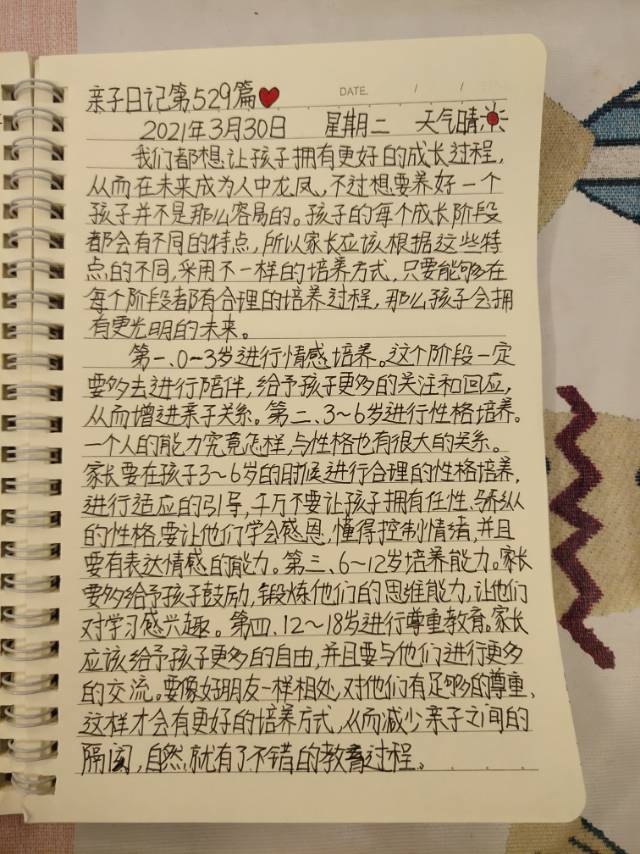 亲子日记第529篇
DATE / /
2021年3月30日 星期二 天气晴
我们都想让孩子拥有更好的成长过程,
从而在未来成为人中龙凤,不过想要养好一个
孩子并不是那么容易的。孩子的每个成长阶段
都会有不同的特点,所以家长应该根据这些特
点的不同,采用不一样的培养方式,只要能够在
每个阶段都有合理的培养过程,那么孩子会拥
有更光明的未来。
第一、0-3岁进行情感培养。这个阶段一定
要够去进行陪伴,给予孩子更多的关注和回应,
从而增进亲子关系。第二、3~6岁进行性格培养。
一个人的能力究竟怎样,与性格也有很大的关系。
家长要在孩子3~6岁的时候进行合理的性格培养,
进行适应的引导,千万不要让孩子拥有任性、骄纵
的性格,要让他们学会感恩,懂得控制情绪,并且
要有表达情感的能力。第三、6~12岁培养能力。家长
要够给予孩子鼓励,锻炼他们的思维能力,让他们
对学习感兴趣。第四、12~18岁进行尊重教育。家长
应该给予孩子更多的自由,并且要与他们进行更多
的交流。要像好朋友一样相处,对他们有足够的尊重、
这样才会有更好的培养方式,从而减少亲子之间的
隔阂,自然就有了不错的教育过程。